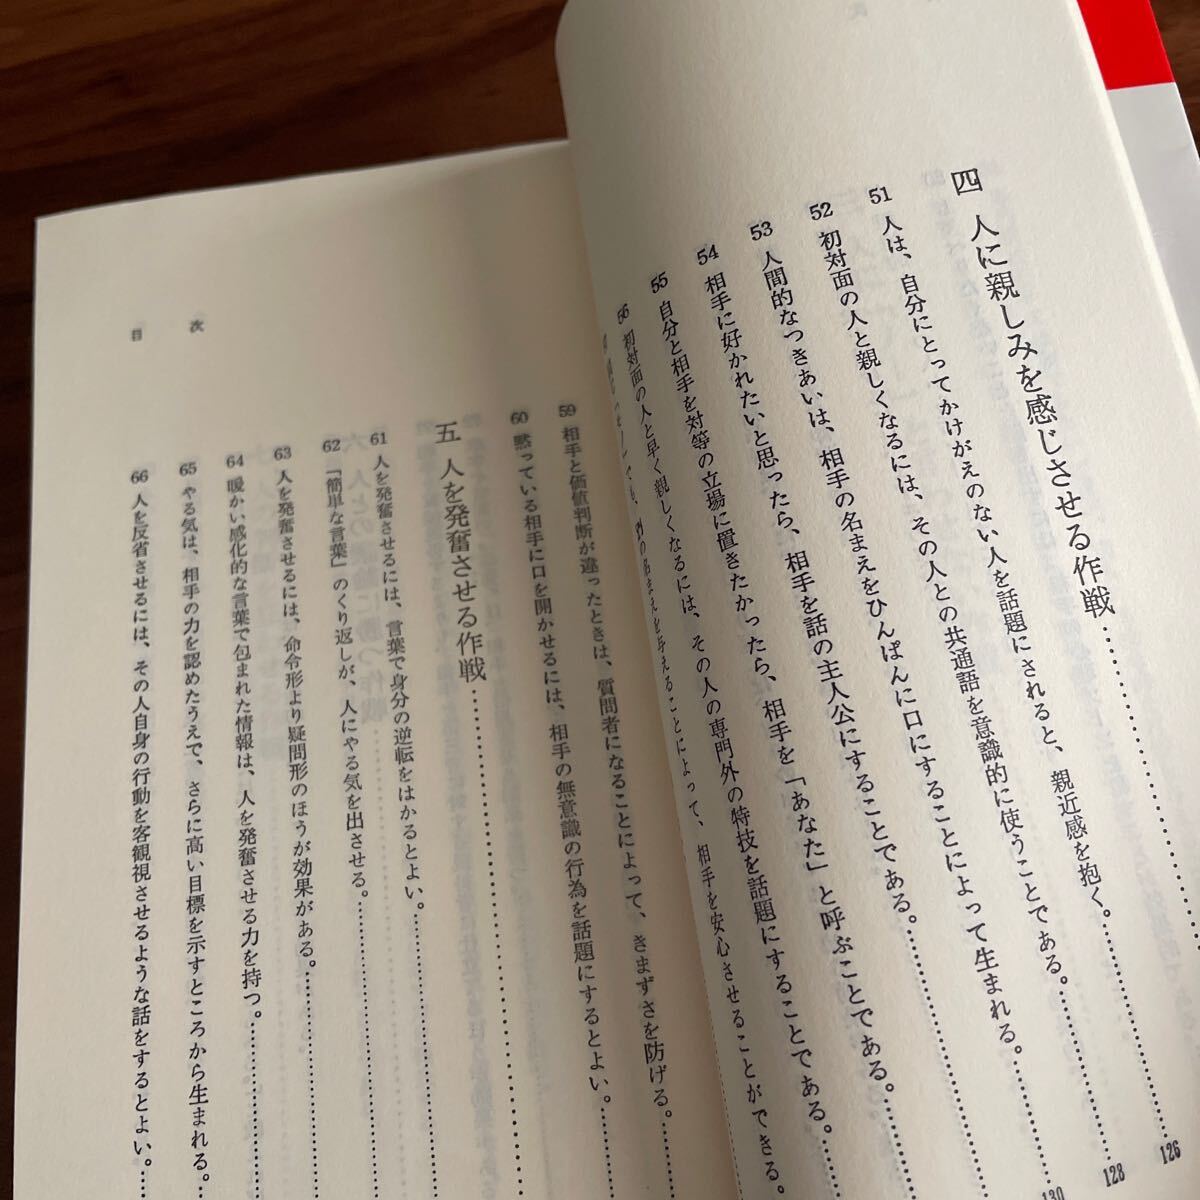 四 人に親しみを感じさせる作戦……………
51 人は、自分にとってかけがえのない人を話題にされると、親近感を抱く。…………… 126
52 初対面の人と親しくなるには、その人との共通語を意識的に使うことである。…………… 128
53 人間的なつきあいは、相手の名まえをひんぱんに口にすることによって生まれる。…………… 130
54 相手に好かれたいと思ったら、相手を話の主人公にすることである。……………
55 自分と相手を対等の立場に置きたかったら、相手を「あなた」と呼ぶことである。……………
56 初対面の人と早く親しくなるには、その人の専門外の特技を話題にすることである。……………
名まえを与えることによって、相手を安心させることができる。
59 相手と価値判断が違ったときは、質問者になることによって、きまずさを防げる。……………
60 黙っている相手に口を開かせるには、相手の無意識の行為を話題にするとよい。……………
五 人を発奮させる作戦……………
61 人を発奮させるには、言葉で身分の逆転をはかるとよい。……………
62 「簡単な言葉」のくり返しが、人にやる気を出させる。……………
63 人を発奮させるには、命令形より疑問形のほうが効果がある。……………
64 暖かい感化的な言葉で包まれた情報は、人を発奮させる力を持つ。……………
65 やる気は、相手の力を認めたうえで、さらに高い目標を示すところから生まれる。……………
66 人を反省させるには、その人自身の行動を客観視させるような話をするとよい。……………
目 次